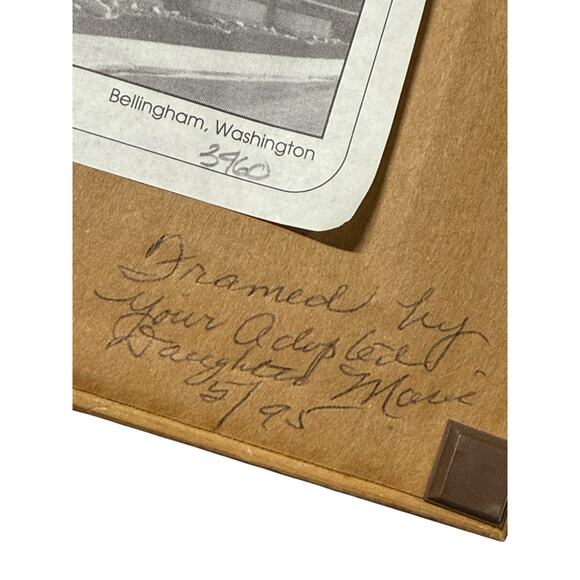 Bellingham, Washington
3460
Framed by
your adopted
Daughter Marie
5/95